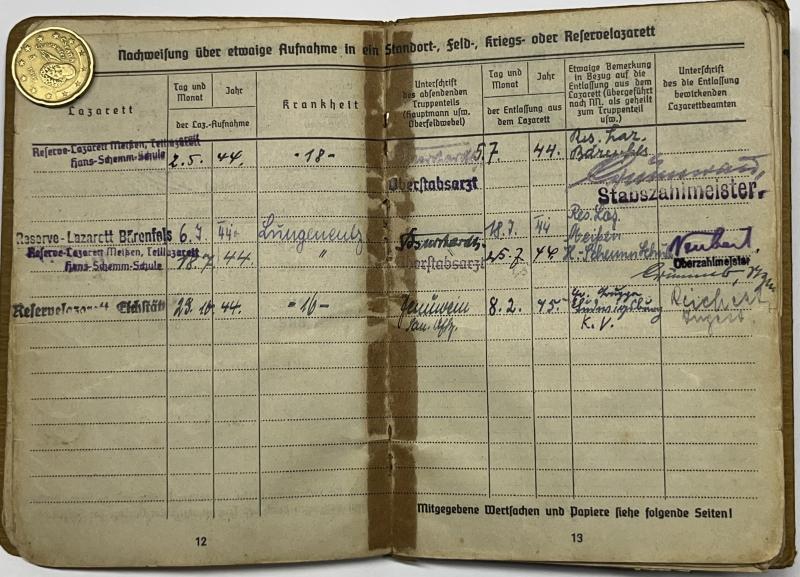 Nachweisung über etwaige Aufnahme in ein Standort-, Feld-, Kriegs- oder Reservelazarett
Lazarett
Tag und Monat
Jahr
der Laz.-Aufnahme
Krankheit
Unterschrift
des absendenden
Truppenteils
(Hauptmann usw.
Oberfeldwebel)
Tag und
Monat
Jahr
der Entlassung aus
dem Lazarett
Etwaige Bemerkung
in Bezug auf die
Entlassung aus dem
Lazarett (übergeführt
nach NN. als geheilt
zum Truppenteil
usw.)
Unterschrift
des die Entlassung
bewirkenden
Lazarettbeamten
Reserve-Lazarett Meißen, Teillazarett
Hans-Schemm-Schule 2.5. 44. -18- 5.7. 44. Res. Laz.
Bärenfels
Oberstabsarzt
Stabszahlmeister.
Reserve-Lazarett Bärenfels 6.7 44. Lungenentz. 18.7. 44 Res. Laz.
Meißen
Reserve-Lazarett Meißen, Teillazarett
Hans-Schemm-Schule 18.7 44. " Oberstabsarzt 25.7 44. H.-Schemm-Schule Neubert
Oberzahlmeister
Reservelazarett Eichstätt 23.10 44. -16- 8.2. 45. z. Truppe Reichert
Ludwigsburg
K.V. Angest.
Mitgegebene Wertsachen und Papiere siehe folgende Seiten!
12
13